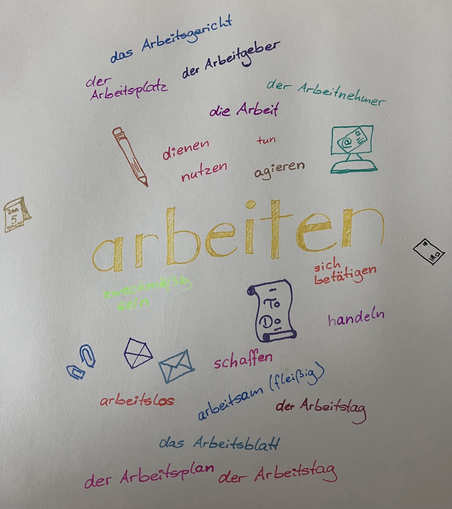 das Arbeitsgericht
der Arbeitgeber
der
Arbeitsplatz
der Arbeitnehmer
die Arbeit
dienen
tun
nutzen
agieren
@
5
arbeiten
sich
betätigen
To
Do
handeln
schaffen
arbeitslos
arbeitsam (fleißig)
der Arbeitstag
das Arbeitsblatt
der Arbeitsplan
der Arbeitstag